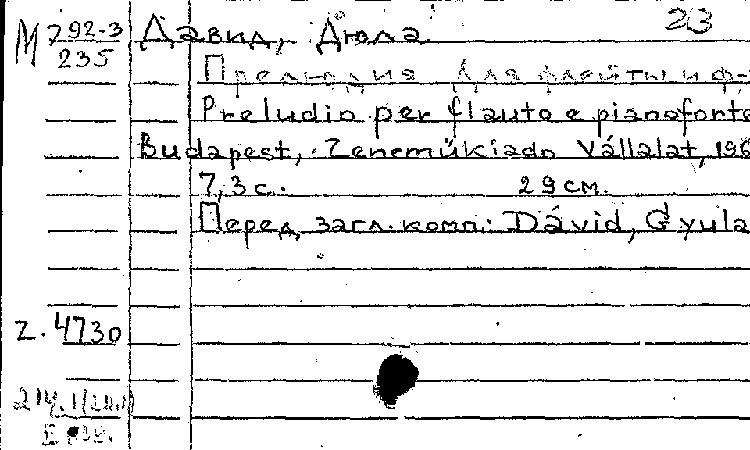 23
М 792-3
235
Давид, Дюла
Прелюдия для флейты и ф-
Preludio per flauto e pianoforte
Budapest, Zeneműkiadó Vállalat, 196
7, 3 с. 29 см.
Перед загл. комп.: Dávid, Gyula
Z. 4730